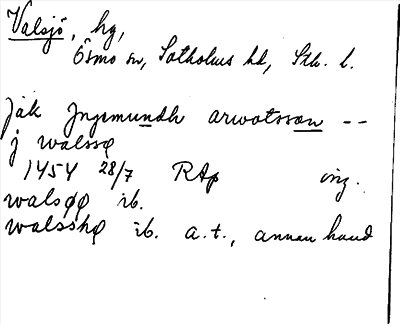 Valsjö, hg,
Ösmo sn, Sotholms hd, Sth. l.
Jak Jngemundh arwatsson --
j walssø
1454 28/7 RAp orig.
walsøø ib.
walsshø ib. a.t., annan hand